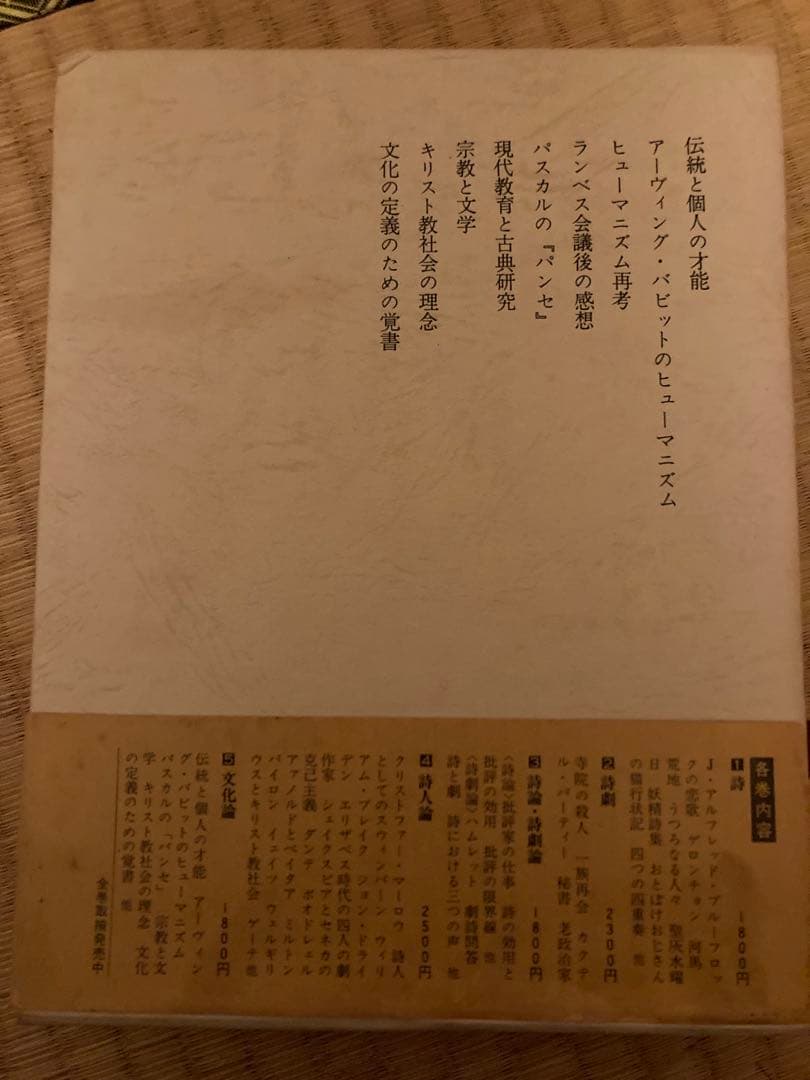 伝統と個人の才能
アーヴィング・バビットのヒューマニズム
ヒューマニズム再考
ランベス会議後の感想
パスカルの『パンセ』
現代教育と古典研究
宗教と文学
キリスト教社会の理念
文化の定義のための覚書
各巻内容
1 詩 1800円
J・アルフレッド・プルーフロッ
クの恋歌 ゲロンチョン 河馬
荒地 うつろなる人々 聖灰水曜
日 妖精詩集 おとぼけおじさん
の猫行状記 四つの四重奏 他
2 詩劇 2300円
寺院の殺人 一族再会 カクテ
ル・パーティー 秘書 老政治家
3 詩論・詩劇論 1800円
〈詩論〉批評家の仕事 詩の効用と
批評の効用 批評の限界線 他
〈詩劇論〉ハムレット 劇詩問答
詩と劇 詩における三つの声 他
4 詩人論 2500円
クリストファー・マーロウ 詩人
としてのスウィンバーン ウィリ
アム・ブレイク ジョン・ドライ
デン エリザベス時代の四人の劇
作家 シェイクスピアとセネカの
克己主義 ダンテ ボオドレェル
アァノルドとペイタア ミルトン
バイロン イェイツ ウェルギリ
ウスとキリスト教社会 ゲーテ他
5 文化論 1800円
伝統と個人の才能 アーヴィン
グ・バビットのヒューマニズム
パスカルの「パンセ」 宗教と文
学 キリスト教社会の理念 文化
の定義のための覚書 他
全巻取揃発売中